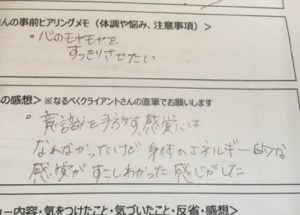 んの事前ヒアリングメモ（体調や悩み、注意事項）＞
・心のモヤモヤを
すっきりさせたい
の感想＞ ※なるべくクライアントさんの直筆でお願いします
・意識を手放す感覚には
なれなかったけど 身体のエネルギー的な
感覚がすこしわかった感じがした
ー内容・気をつけたこと・気づいたこと・反省・感想＞